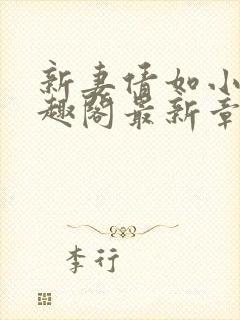 新妻情如小
趣阁最新章
李行